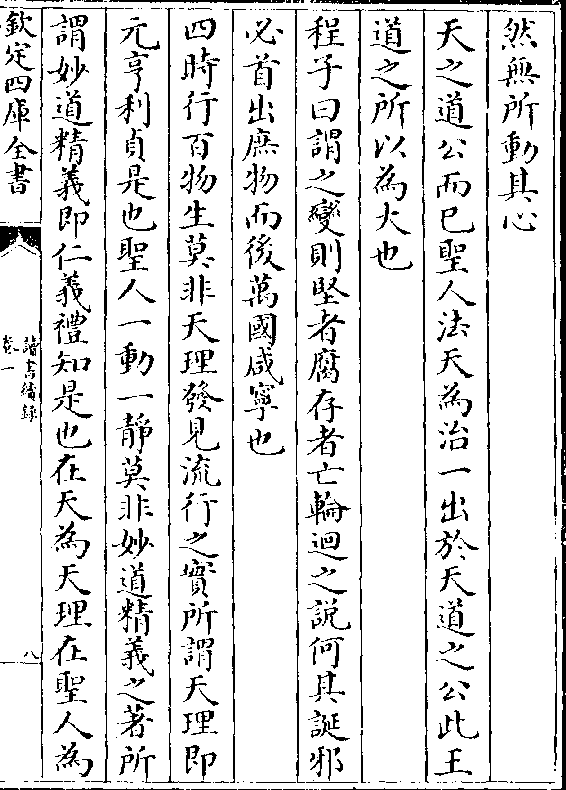 然無所動其心
天之道公而已聖人法天為治一出於天道之公此王
道之所以為大也
程子曰謂之變則堅者腐存者亡輪迴之說何其誕邪
必首出庶物而後萬國咸寧也
四時行百物生莫非天理發見流行之實所謂天理即
元亨利貞是也聖人一動一靜莫非妙道精義之著所
謂妙道精義即仁義禮知是也在天為天理在聖人為
欽定四庫全書
讀書續錄
卷一
八